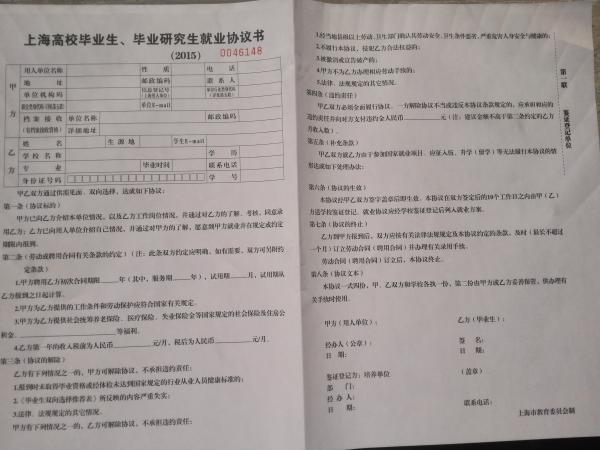 上海高校毕业生、毕业研究生就业协议书
(2015) 0046148
甲方
用人单位名称 性质 电话
地址 邮政编码 联系人
单位机构代码
单位E-mail
档案接收 单位名称 邮政编码
详细地址
乙方
姓名 生源地 学生E-mail
学校名称 学历
专业 毕业时间 联系电话
身份证号码 学号
甲乙双方通过供需见面、双向选择，达成如下协议：
第一条（协议标的）
甲方已向乙方介绍本单位情况，以及乙方工作岗位情况，并通过对乙方的了解、考核，同意录
用乙方；乙方已向用人单位介绍自己情况，并通过对甲方的了解，愿意到甲方就业并在规定或约定
期限内报到。
第二条（劳动或聘用合同有关条款的约定）（注：此条双方约定应明确，如有需要，双方可另附约
定条款）
1.甲方聘用乙方初次合同期限____年（其中，服务期____年），试用期____月，试用期从
乙方报到之日起计算。
2.甲方为乙方提供的工作条件和劳动保护应符合国家有关规定。
3.甲方为乙方提供社会统筹养老保险、医疗保险、失业保险金等国家规定的社会保险及住房公
积金、____等福利。
4.乙方第一年的收入税前为人民币____元/月，税后为人民币____元/月。
第三条（协议的解除）
乙方有下列情况之一的，甲方可解除协议，不承担违约责任：
1.报到时未取得毕业资格或经体检未达到国家规定的行业从业人员健康标准的；
2.《毕业生双向选择推荐表》所反映的内容严重失实；
3.法律、法规规定的其它情况。
甲方有下列情况之一的，乙方可解除协议，不承担违约责任：
1.经当地县级以上劳动、卫生部门确认其劳动安全、卫生条件恶劣，严重危害人身安全与健康的；
2.不履行本协议，侵犯乙方合法权益的；
3.被撤消或宣告破产的；
4.甲方不为乙方办理相应劳动手续的；
5.法律、法规规定的其它情况。
第四条（违约责任）
甲乙双方必须全面履行协议。一方解除协议不当或违反本协议条款规定的，应承担相应的
违约责任并向对方支付违约金人民币____元（注：建议金额不高于第二条约定的乙方
月收入数）。
第五条（补充条款）
甲乙双方就乙方由于参加国家就业项目、应征入伍、升学（留学）等无法履行本协议的情
形达成如下处理办法：
第六条（协议的生效）
本协议经甲乙双方签字盖章后即生效。本协议在双方签定后的10个工作日之内由甲（乙）
方送学校鉴证登记。就业协议应经学校鉴证登记后列入就业方案。
第七条（协议的终止）
乙方到甲方报到后，双方应按有关法律法规规定及本协议约定的条款，及时（最长不超过
一个月）订立劳动合同（聘用合同）并办理有关录用手续。
劳动合同（聘用合同）订立后，本协议终止。
第八条（协议文本）
本协议一式四份，甲、乙双方和学校各执一份，第二份由甲方或乙方妥善保管，供办理有
关手续时使用。
甲方（用人单位）： 乙方（毕业生）：
经办人（公章）： 签名：
日期： 日期：
鉴证登记方：培养单位 （盖章）
部门：
经办人： 联系电话：
日期：
上海市教育委员会制
第一联 鉴证登记单位